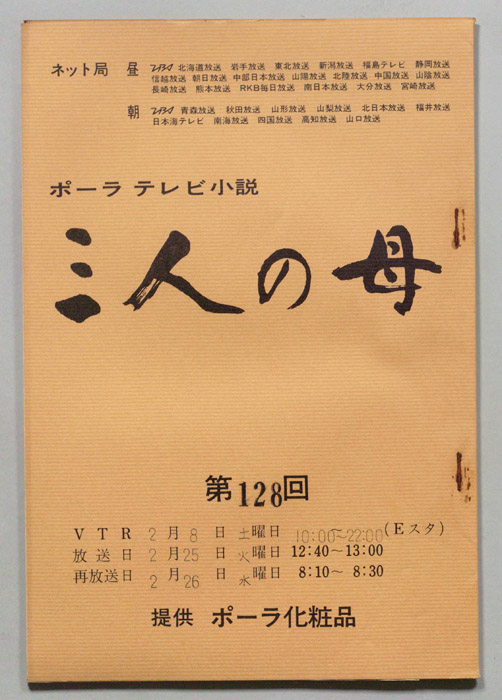 ネット局 昼 TBS 北海道放送 岩手放送 東北放送 新潟放送 福島テレビ 静岡放送
信越放送 朝日放送 中部日本放送 山陽放送 北陸放送 中国放送 山陰放送
長崎放送 熊本放送 RKB毎日放送 南日本放送 大分放送 宮崎放送
朝 TBS 青森放送 秋田放送 山形放送 山梨放送 北日本放送 福井放送
日本海テレビ 南海放送 四国放送 高知放送 山口放送
ポーラ テレビ小説
三人の母
第128回
VTR 2月8日 土曜日 10:00〜22:00(Eスタ)
放送日 2月25日 火曜日 12:40〜13:00
再放送日 2月26日 水曜日 8:10〜8:30
提供 ポーラ化粧品